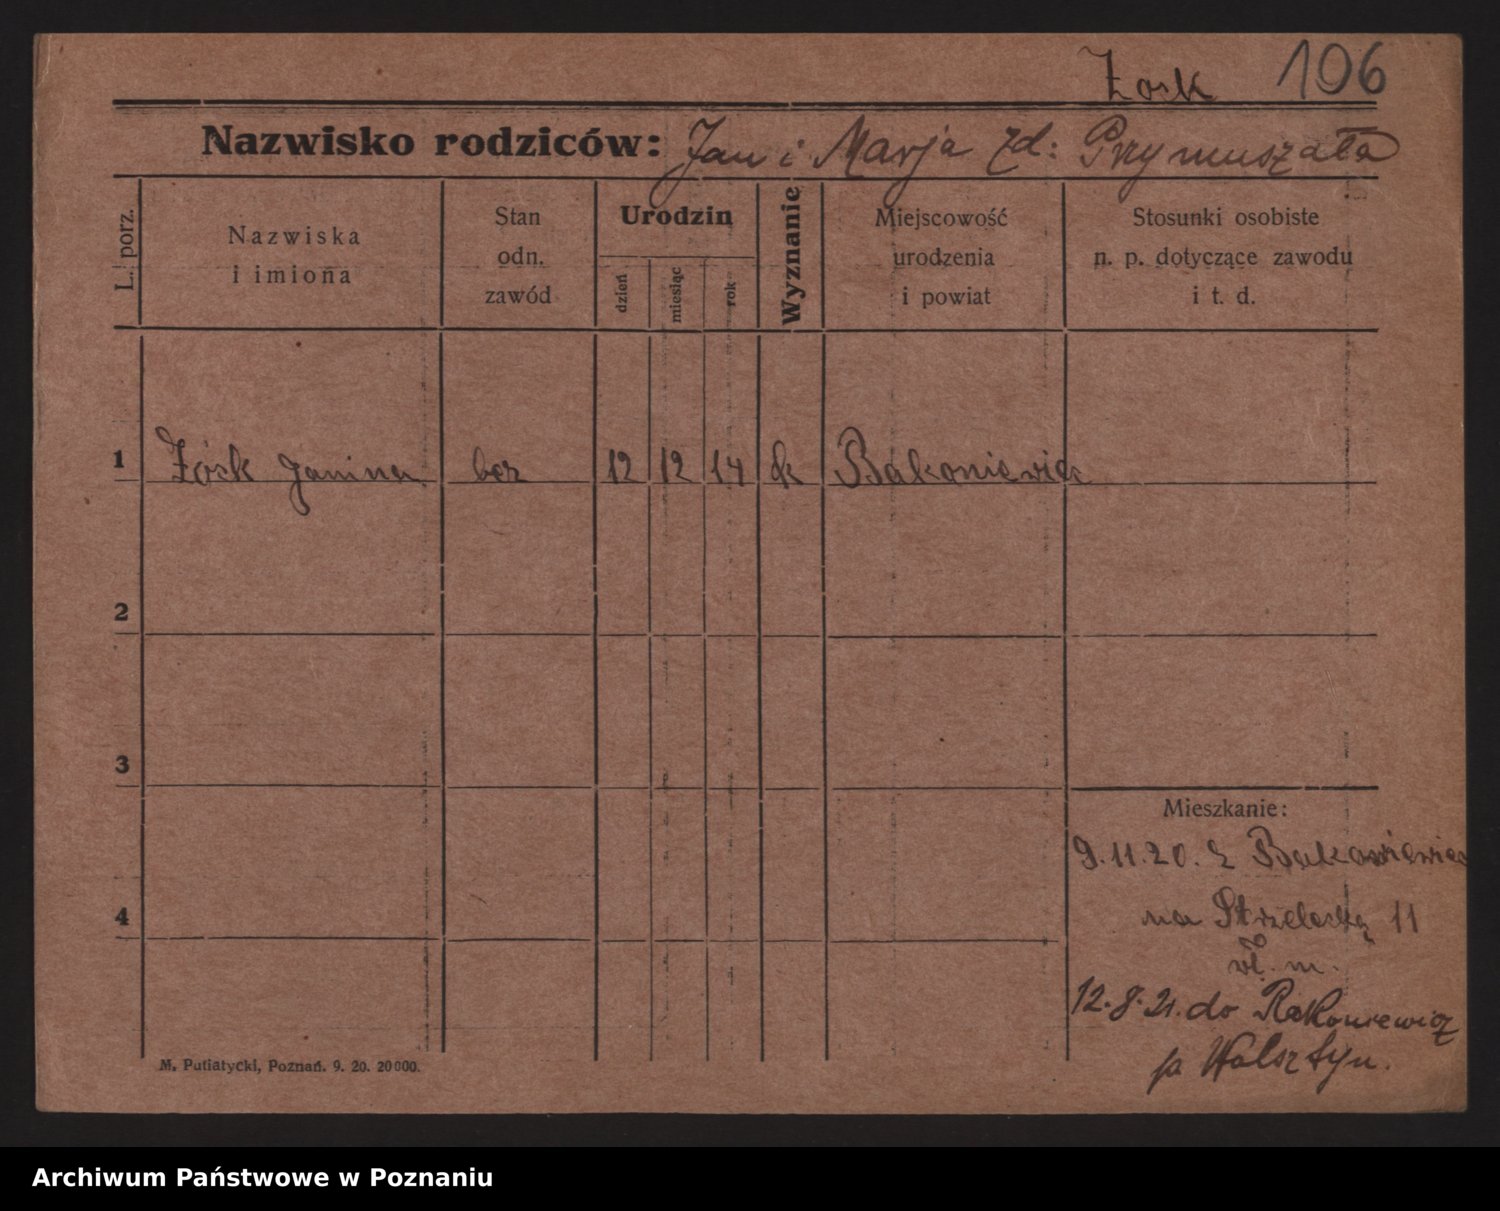 Żork 106
Nazwisko rodziców: Jan i Marja zd: Przymuszała
L. porz.
Nazwiska
i imiona
Stan
odn.
zawód
Urodzin
dzień
miesiąc
rok
Wyznanie
Miejscowość
urodzenia
i powiat
Stosunki osobiste
n. p. dotyczące zawodu
i t. d.
1 Żórk Janina bez 12 12 14 k Rakoniewice
2
3
4
Mieszkanie:
9.11.20. z Rakoniewic
na Strzelecką 11
wł. m.
12.8.21. do Rakoniewicz
p Wolsztyn.
M. Putiatycki, Poznań. 9. 20. 20000.
Archiwum Państwowe w Poznaniu